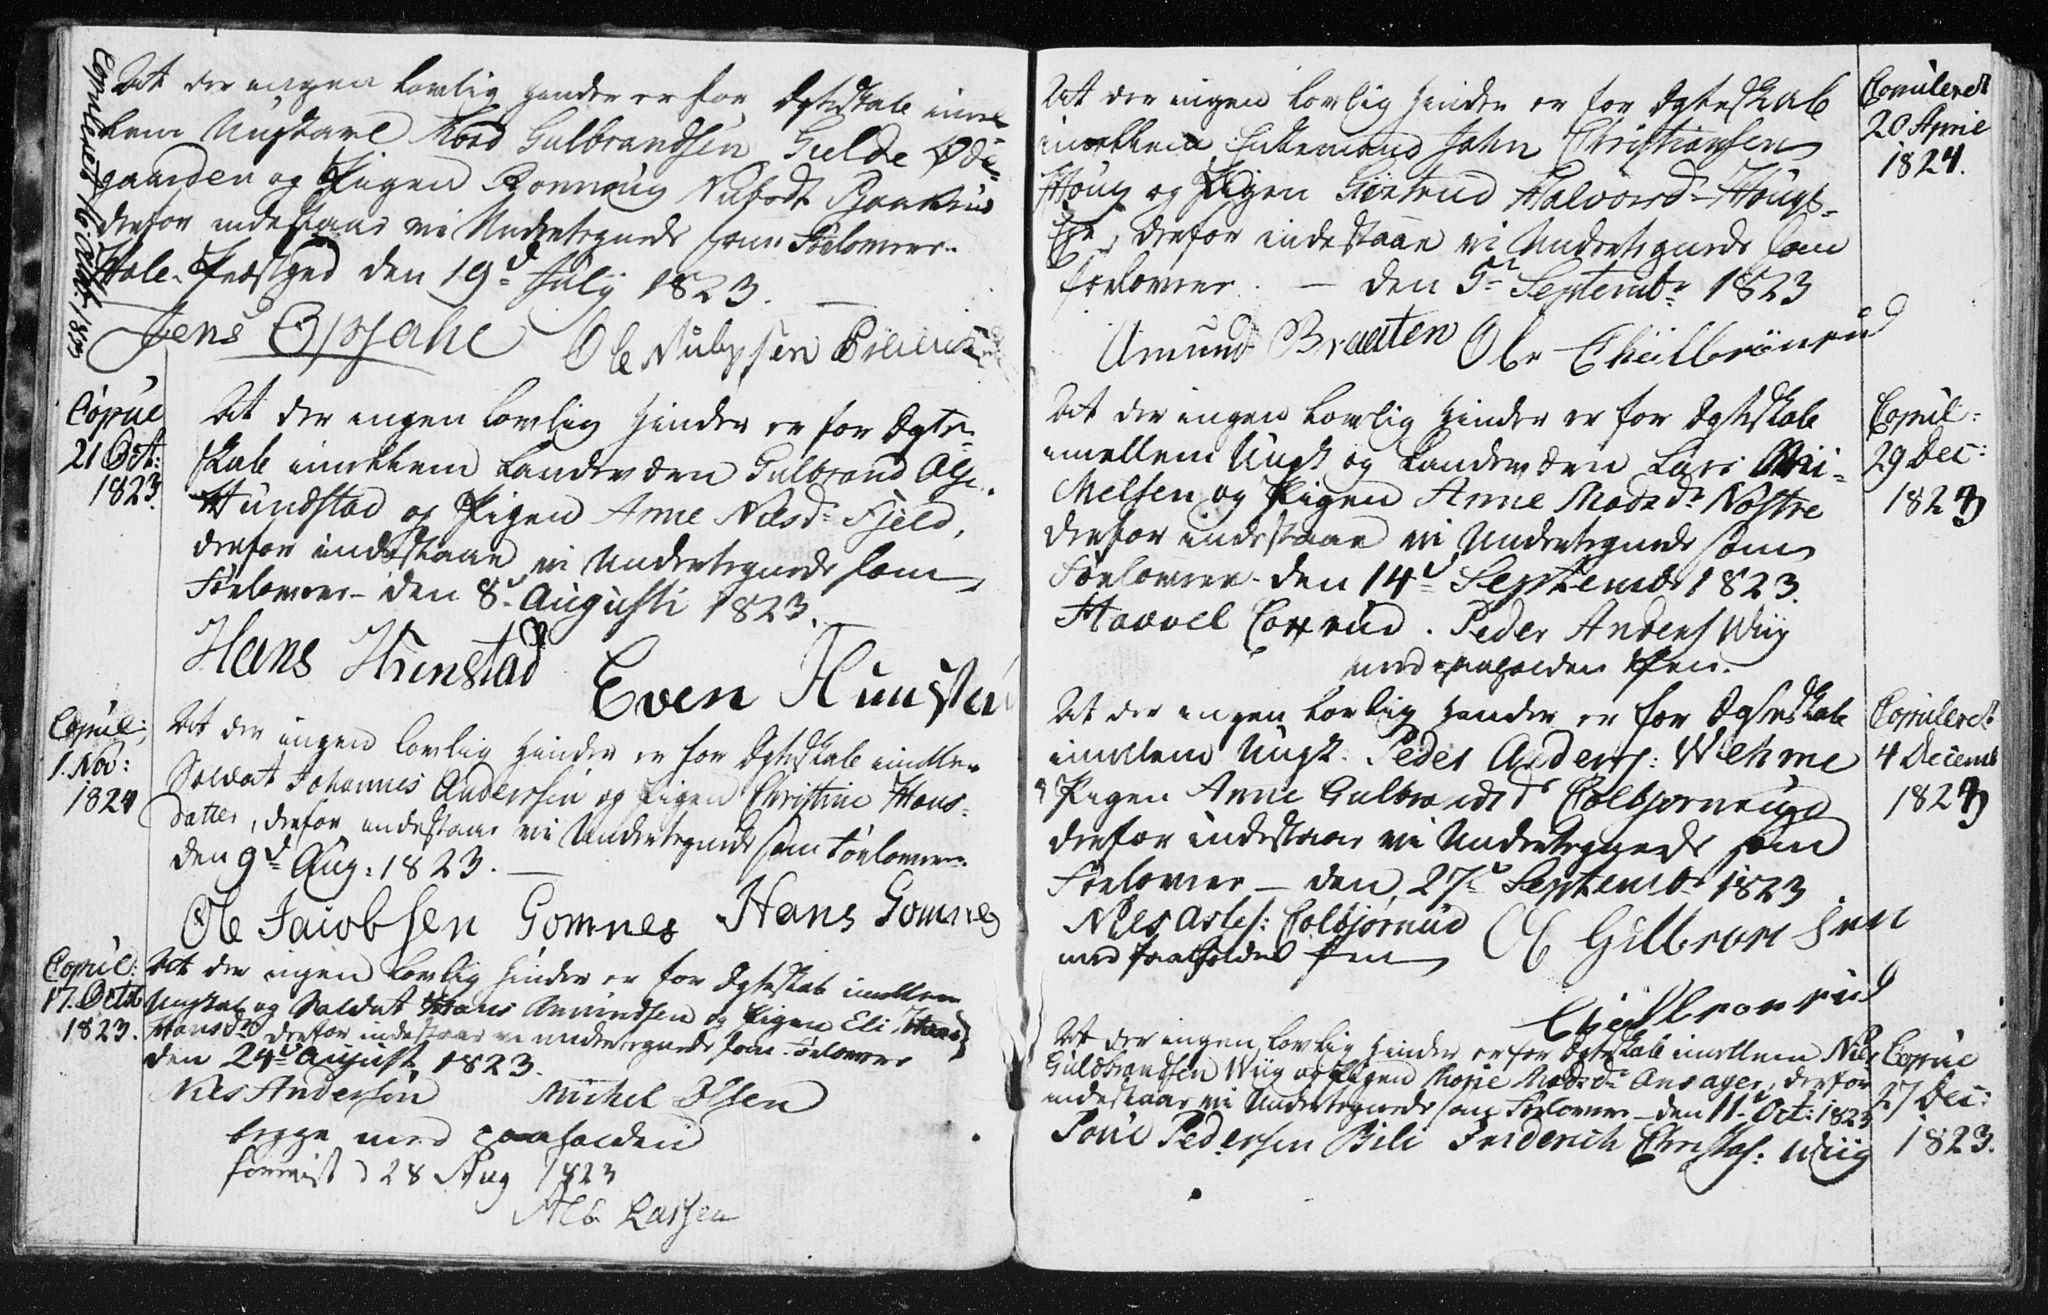 Copuleret 16 Octb: 1823
At der ingen lovlig Hinder er for Ægteskab imel-
lem Ungkarl Mord Gulbrandsen Gulde Øde-
gaarden og Pigen Ronnoug Nubsdt
derfor indestaar vi Undertegnede som Forlovere.
Hole Præstgrd den 19d July 1823.
Jens Opsahl
Ole
Copul
21 Oct:
1823.
At der ingen lovlig Hinder er for Ægte-
skab imellem Landeværn Gulbrand Ols.
Hundstad og Pigen Anne Nilsdr Fjeld,
derfor indestaar vi Undertegnede som
Forlovere – den 8d Augusti 1823.
Hans Hunstad Even Hunstad
Copul:
1. Nov:
1824
At der ingen lovlig Hinder er for Ægteskab imellem
Soldat Johannes Anderssen og Pigen Christine Hans-
datter, derfor indestaar vi Undertegnede som Forlovere.
den 9d Aug: 1823. —
Ole Jacobsen Gomnes Hans Gomnes
Copul:
17. Octb
1823.
At der ingen lovlig Hinder er for Ægteskab imellem
Ungkarl og Soldat Hans Amundsen og Pigen Eli
Hansdr derfor indestaar vi undertegnede som Forlovere
den 24d August 1823.
Niels Anderson Michel Olsen
begge med paaholden
forevist d 28 Aug 1823
Alb. Lassen
At der ingen lovlig Hinder er for Ægteskab
imellem Enkemand John Christiansen
Houg og Pigen Giertrud Halvorsd Hougs-
Eje, derfor indestaar vi Undertegnede som
Forlovere. — den 5d Septembr 1823
Amund Braaten Ole
Copuleret
20 April
1824.
At der ingen lovlig Hinder er for Ægteskab
imellem Ungk og Landeværn Lars
Melsen og Pigen Anne Madsdr Nøstre
derfor indestaar vi Undertegnede som
Forlovere – den 14d Septembr 1823.
Haavel Peder Anders Wiig
med paaholden Pen.
Copul:
29 Dec:
1823
At der ingen lovlig Hinder er for Ægteskab
imellem Ungk. Peder Anders: Wehme
& Pigen Anne Gulbrandsd Colbjørnrud
derfor indestaar vi Undertegnede som
Forlovere — den 27d Septembr 1823
Niels Asles: Colbjørnrud Ole Gulbransen
med paaholden Pen
Copuleret
4 Decemb
1823
At der ingen lovlig Hinder er for Ægteskab imellem Niels
Guldbrandsen Wiig og Pigen Marie Madsdr Ansager, derfor
indestaar vi Undertegnede som Forlovere – den 11. Oct: 1823
Povel Pedersen Bili Friderich Christof: Wiig
Copul
27 Dec:
1823.